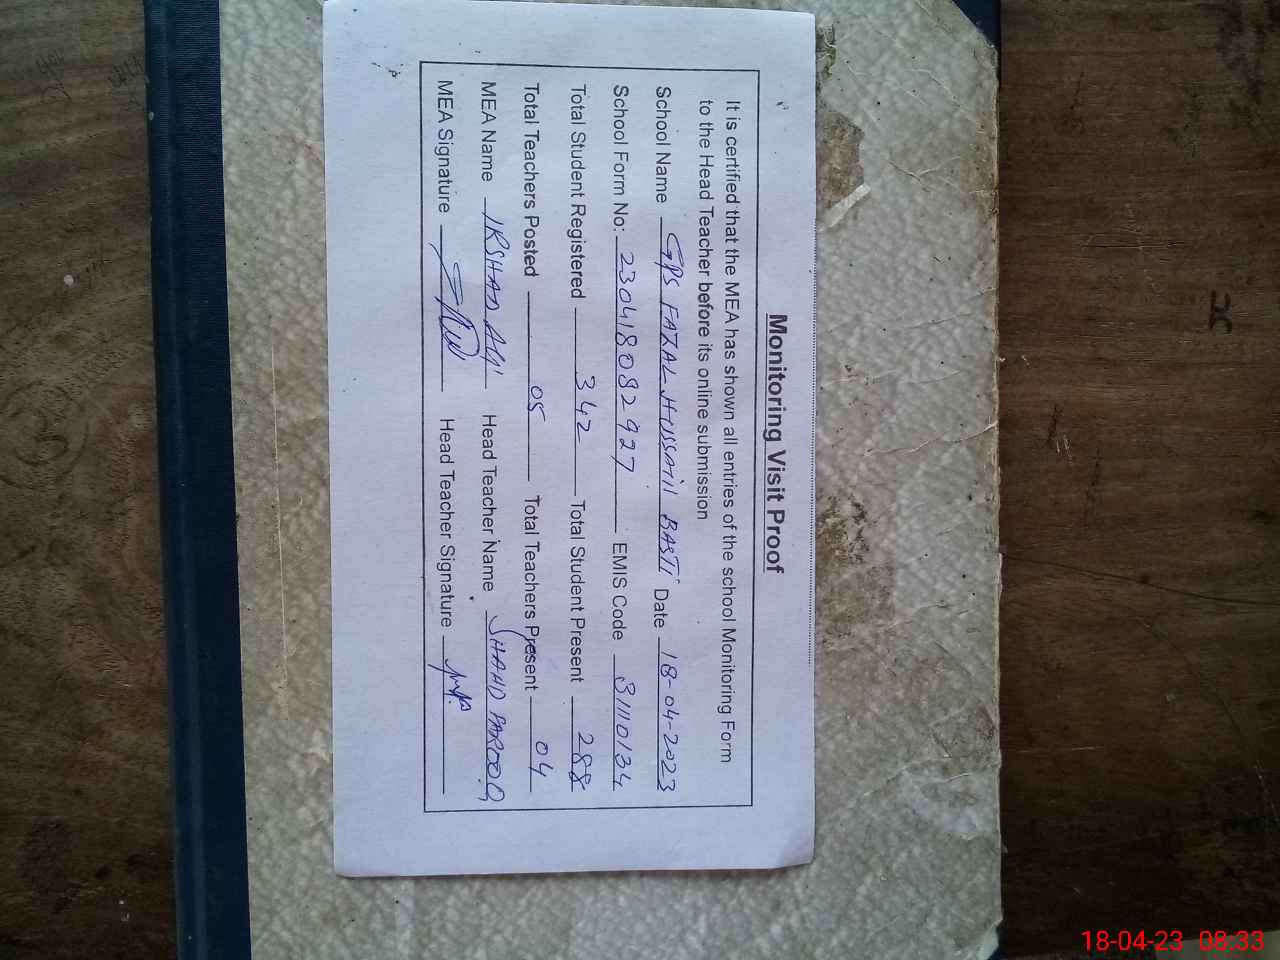 Monitoring Visit Proof
It is certified that the MEA has shown all entries of the school Monitoring Form
to the Head Teacher before its online submission
School Name GPS FAZAL HUSSAIN BASTI Date 18-04-2023
School Form No: 230418082927 EMIS Code 31110134
Total Student Registered 342 Total Student Present 288
Total Teachers Posted 05 Total Teachers Present 04
MEA Name IRSHAD ALI Head Teacher Name FAROOQ
MEA Signature Head Teacher Signature
18-04-23 08:33